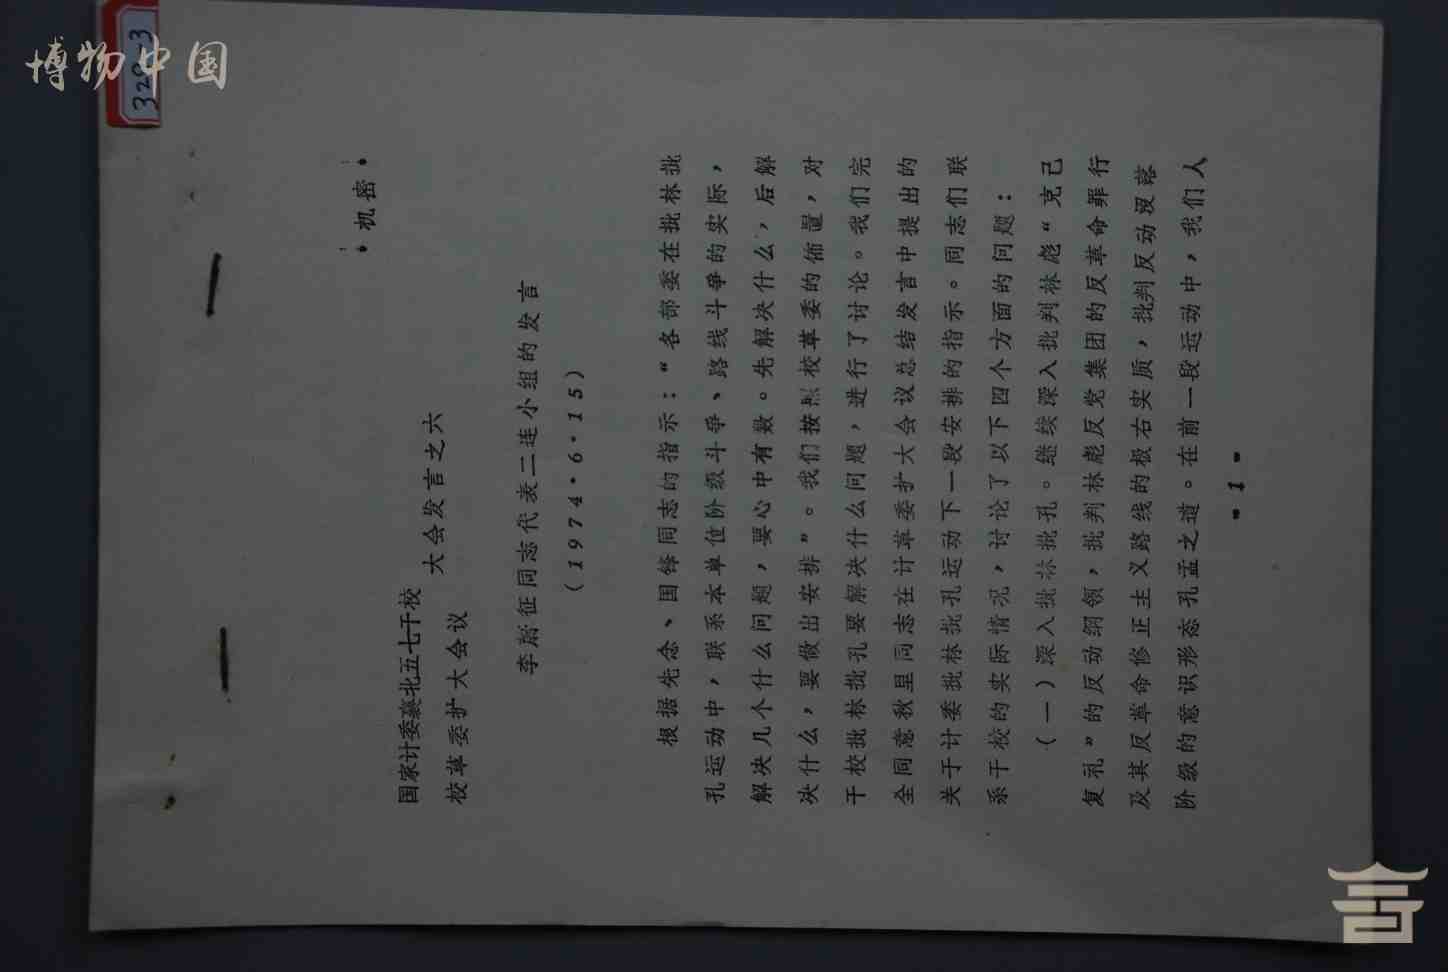 博物中国
329-3
机密
国家计委襄北五七干校
校革委扩大会议
大会发言之六
李 征同志代表二连小组的发言
（1974·6·15）
根据先念、国锋同志的指示：“各部委在批林批
孔运动中，联系本单位阶级斗争、路线斗争的实际，
解决几个什么问题，要心中有数。先解决什么，后解
决什么，要做出安排”。我们按照校革委的佈置，对
干校批林批孔要解决什么问题，进行了讨论。我们完
全同意秋里同志在计革委扩大会议总结发言中提出的
关于计委批林批孔运动下一段安排的指示。同志们联
系干校的实际情况，讨论了以下四个方面的问题：
（一）深入批林批孔。继续深入批判林彪“克己
复礼”的反动纲领，批判林彪反党集团的反革命罪行
及其反革命修正主义路线的极右实质，批判反动没落
阶级的意识形态孔孟之道。在前一段运动中，我们人
·1·